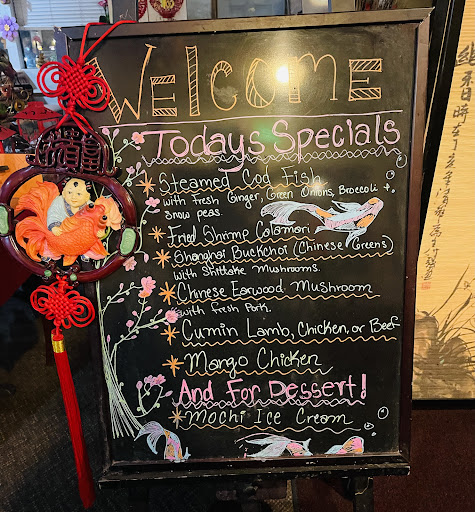 Welcome
Todays Specials
Steamed Cod Fish
with Fresh Ginger, Green Onions, Broccoli +
Snow peas.
Fried Shrimp Calamari
Shanghai Buckchoi (Chinese Greens)
with Shittake Mushrooms.
Chinese Earwood Mushroom
with Fresh Pork.
Cumin Lamb, Chicken, or Beef
Mango Chicken
And For Dessert!
Mochi Ice Cream